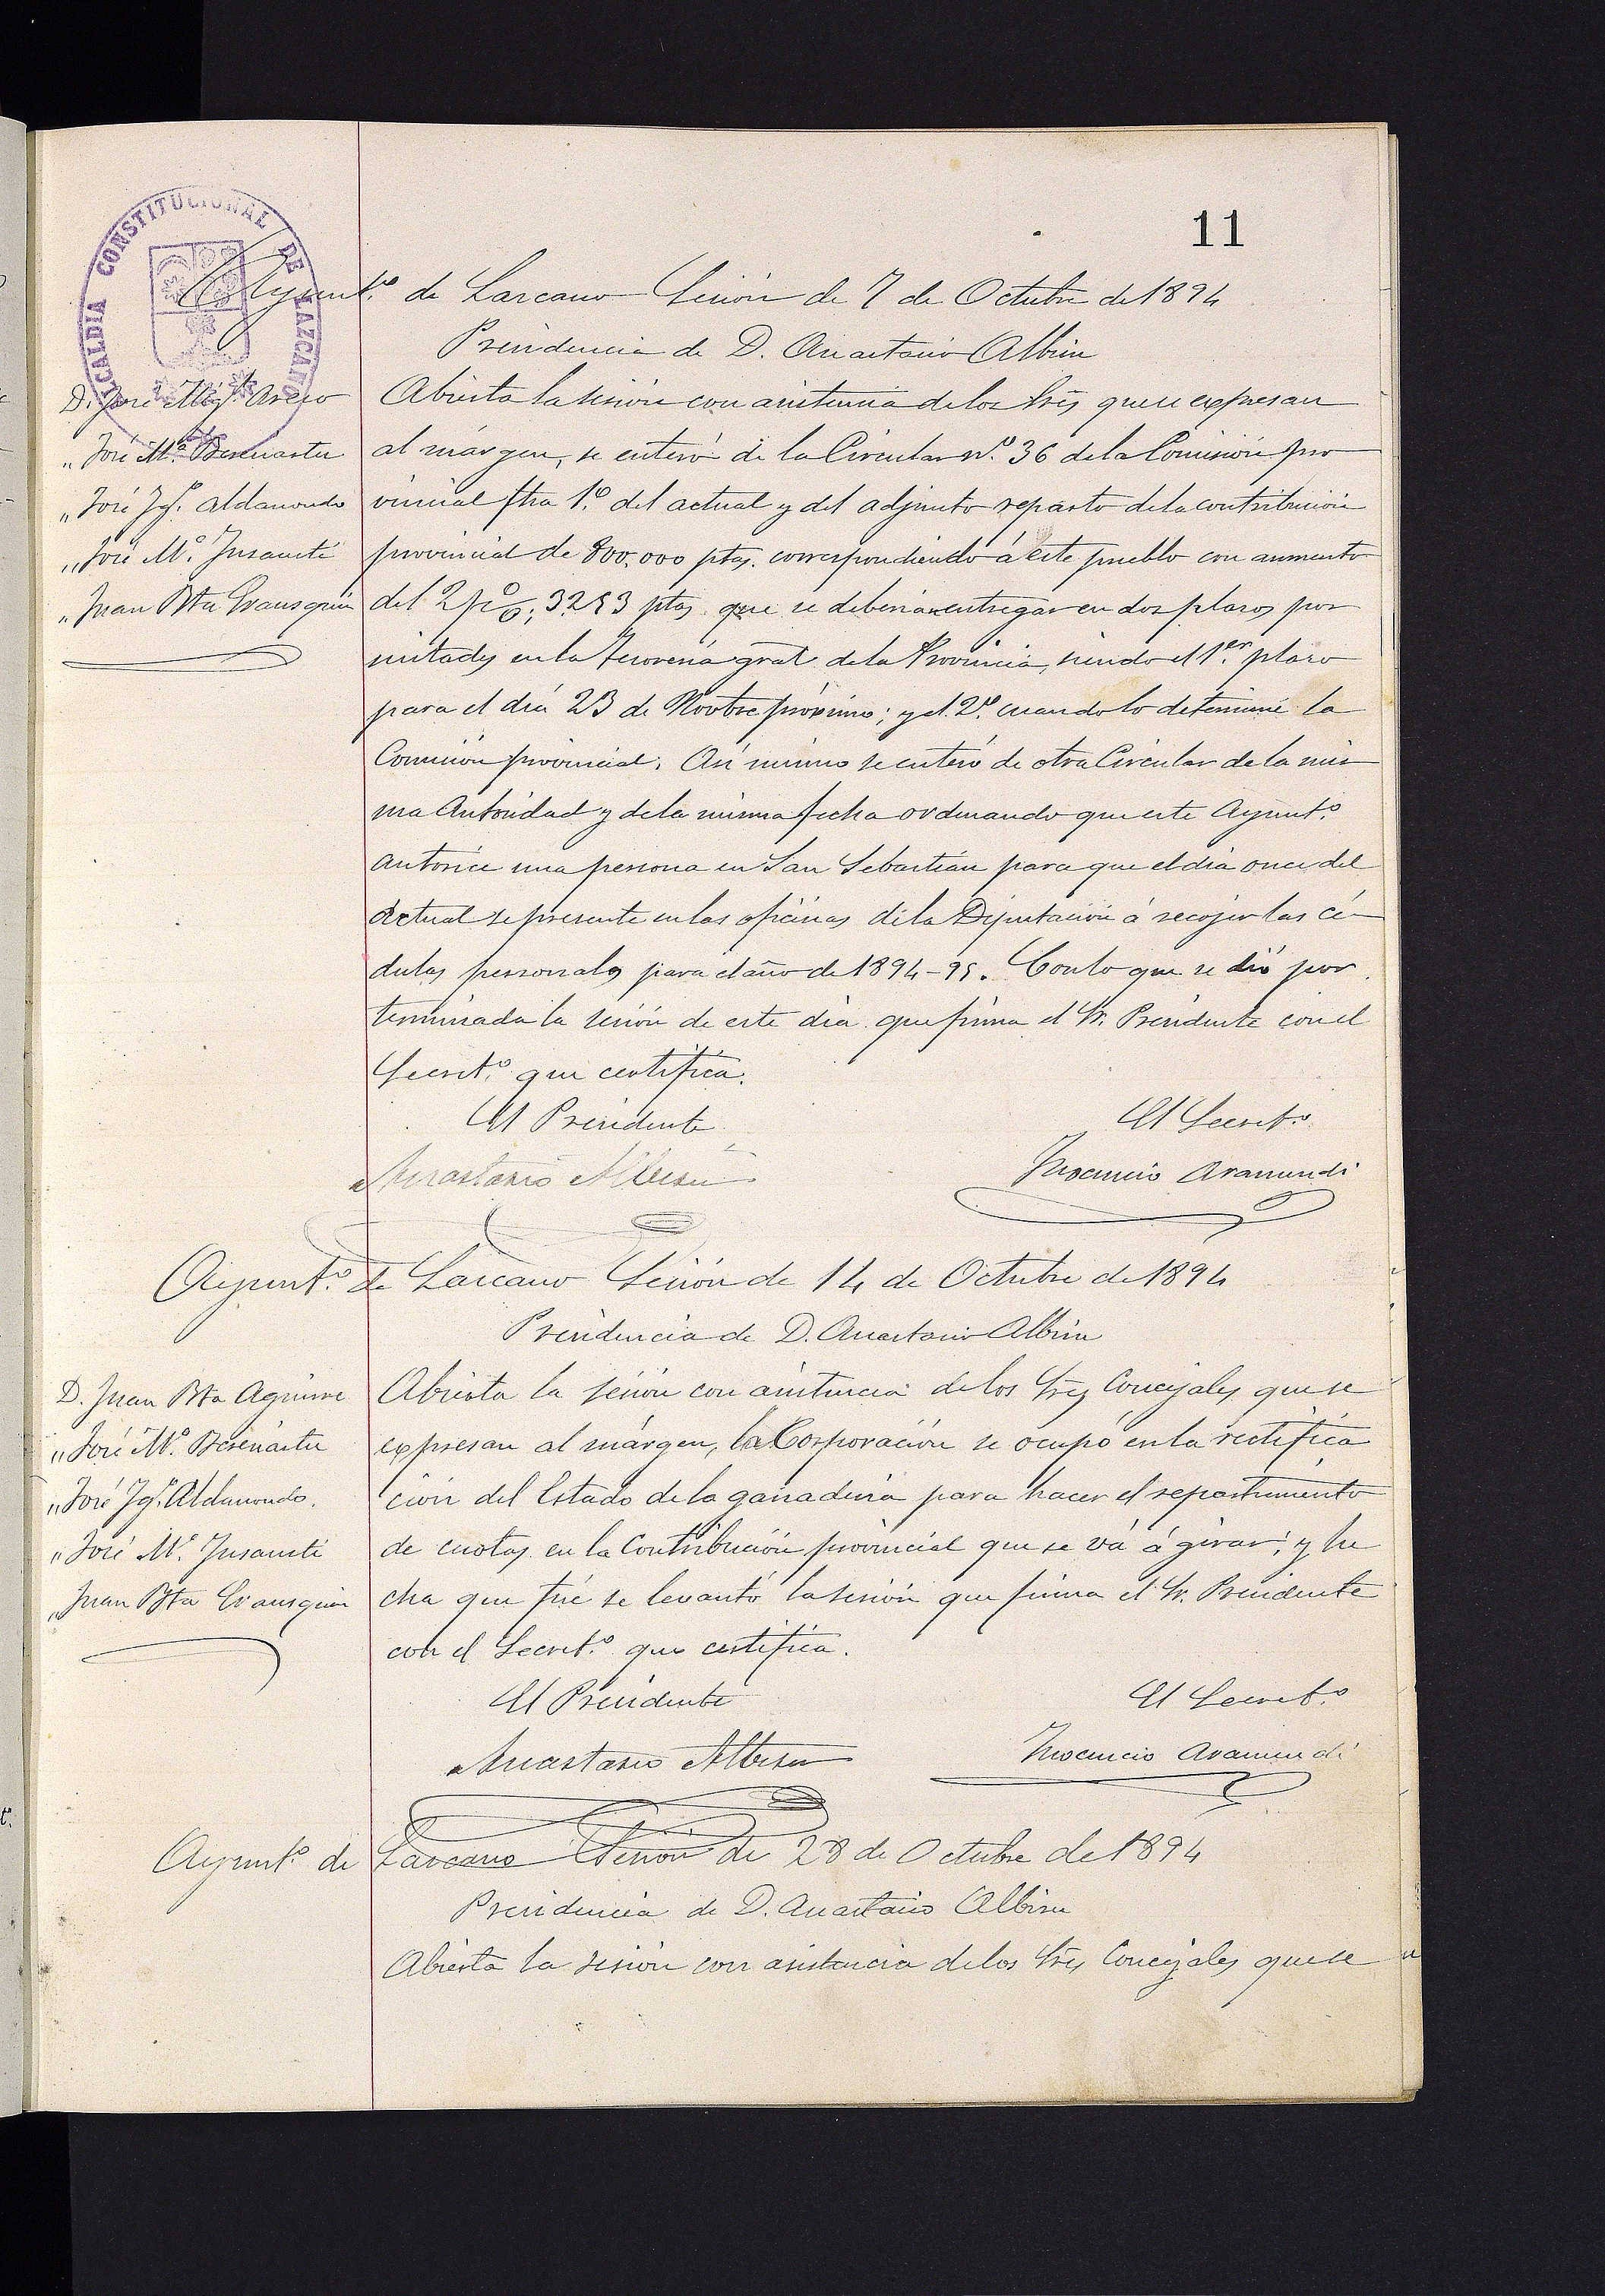 11
ALCALDIA CONSTITUCIONAL DE LAZCANO
Ayunt.º de Lazcano Sesión de 7 de Octubre de 1894
Presidencia de D. Anastasio Albisu
D. José Mig.l
„ José M.ª Berenartu
„ José Ig.º Aldanondo
„ José M.ª Insausti
„ Juan Bta Erausquin
Abierta la sesión con asistencia de los Sres que se expresan
al márgen, se enteró de la Circular n.º 36 de la Comisión pro
vincial fha 1.º del actual y del adjunto reparto de la contribución
provincial de 800.000 ptas. correspondiendo á este pueblo con aumento
del 2 p%, 3253 ptas que se deberian entregar en dos plazos por
mitades en la Tesoreria gral de la Provincia, siendo el 1.er plazo
para el día 23 de Novbre próximo; y el 2.º cuando lo determine la
Comisión provincial. Asi mismo se enteró de otra Circular de la mis
ma Autoridad y de la misma fecha ordenando que este Ayunt.º
autorice una persona en San Sebastián para que el dia once del
actual se presente en las oficinas de la Diputación á recojer las cé-
dulas personales para el año de 1894-95. Con lo que se dió por
terminada la sesión de este dia que firma el Sr. Presidente con el
Secret.º que certifica.
El Presidente El Secret.º
Anastasio Albisu Inocencio Aramendi
Ayunt.º de Lazcano Sesión de 14 de Octubre de 1894
Presidencia de D. Anastasio Albisu
D. Juan Bta Aguirre
„ José M.ª Berenartu
„ José Ig.º Aldanondo.
„ José M.ª Insausti
„ Juan Bta Erausquin
Abierta la sesión con asistencia de los Sres Concejales que se
expresan al márgen, la Corporación se ocupó en la rectifica
ción del Estado de la ganaderia para hacer el repartimiento
de cuotas en la Contribución provincial que se vá á girar; y he
cha que fué se levantó la sesión que firma el Sr. Presidente
con el Secret.º que certifica.
El Presidente El Secret.º
Anastasio Albisu Inocencio Aramendi
Ayunt.º de Lazcano Sesión de 28 de Octubre de 1894
Presidencia de D. Anastasio Albisu
Abierta la sesión con asistencia de los Sres Concejales que se